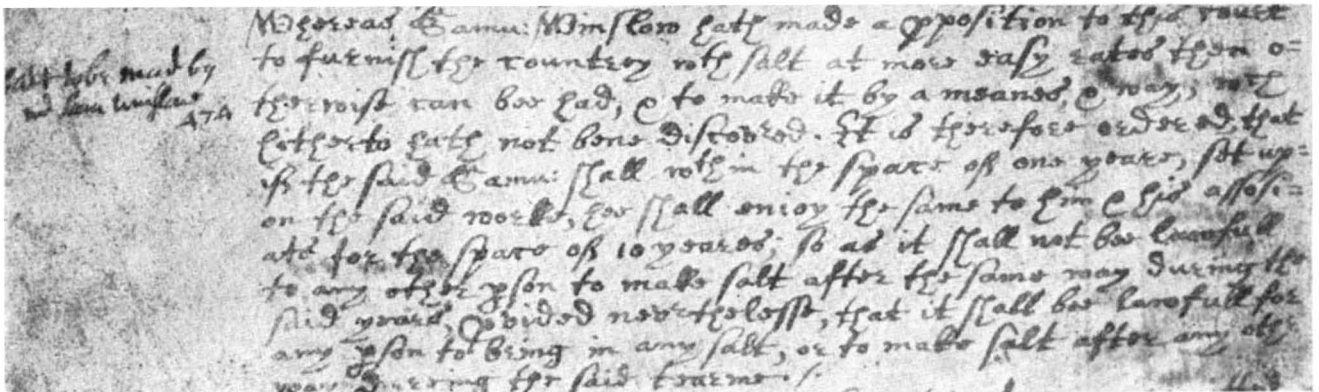 Whereas Samu: Winslow hath made a pposition to this Court
to furnish the countrey wth salt at more easy rates then o=
therwise can bee had, & to make it by a meanes, & way, wch
hitherto hath not bene discovred. It is therefore ordered, that
if the said Samu: shall wthin the space of one yeare, set up=
on the said worke, hee shall enioy the same to him & his assosi=
ats for the space of 10 yeares; so as it shall not bee lawfull
to any other pson to make salt after the same way during the
said years, pvided nevrthelesse, that it shall bee lawfull for
any pson to bring in any salt, or to make salt after any othr
way dureing the said tearme /.
Salt to be mad by
mr Sam Winslow
474